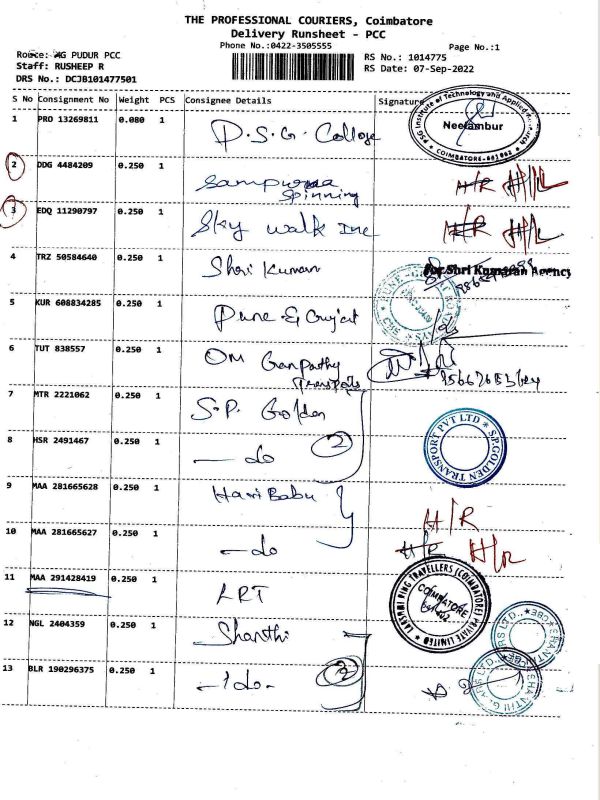 THE PROFESSIONAL COURIERS, Coimbatore
Delivery Runsheet - PCC
Phone No.:0422-3505555
Page No.:1
AG PUDUR PCC
Staff: RUSHEEP R
DRS No.: DCJB101477501
RS No.: 1014775
RS Date: 07-Sep-2022
S No Consignment No Weight PCS Consignee Details Signature
1 PRO 13269811 0.080 1 P.S.G. College
PSG Institute of Technology and Applied
Neelambur
COIMBATORE-641062
2 DDG 4484209 0.250 1 Sampurna Spinning
H/R
3 EDQ 11290797 0.250 1 Sky walk Inc
H/R
4 TRZ 50584640 0.250 1 Shri Kumaran
for Shri Kumaran Agency
5 KUR 608834285 0.250 1 Pune & Gujrat
6 TUT 838557 0.250 1 Om Ganpathy
7 MTR 2221062 0.250 1 S.P. Golden
8 HSR 2491467 0.250 1 - do 2
S.P.GOLDEN TRANSPORT PVT LTD
9 MAA 281665628 0.250 1 Hari Babu
H/R
10 MAA 281665627 0.250 1 - do
H/R H/R
11 MAA 291428419 0.250 1 LRT
LAKSHMI RING TRAVELLERS (COIMBATORE) PRIVATE LIMITED
COIMBATORE
12 NGL 2404359 0.250 1 Shanthi
13 BLR 190296375 0.250 1 - do - 2
SHANTHI GEARS LTD., CBE